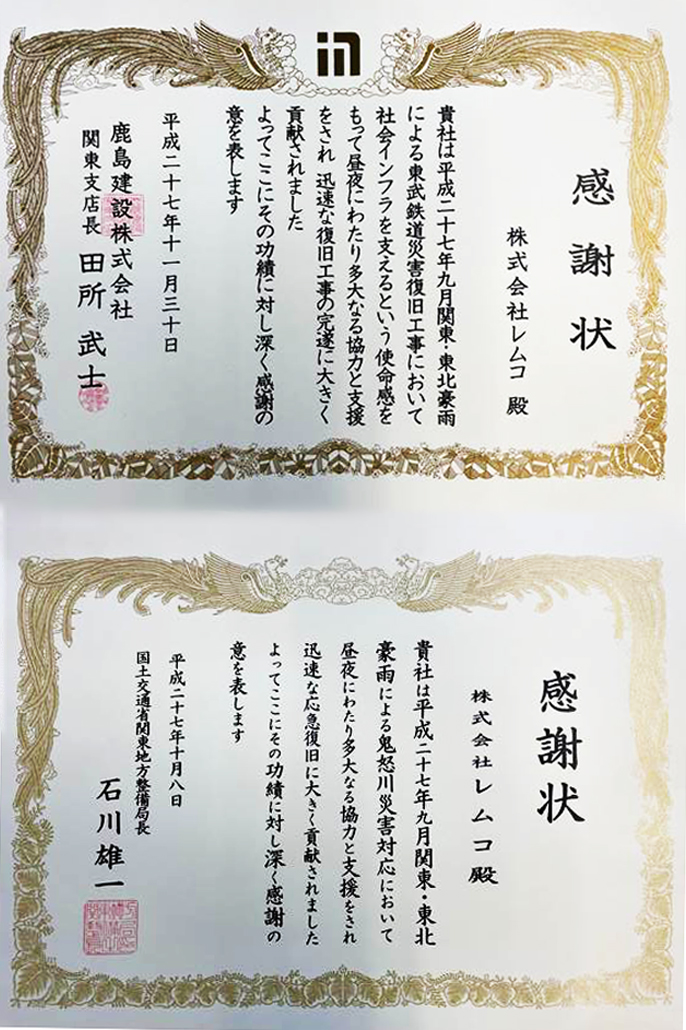 感謝状
株式会社レムコ 殿
貴社は平成二十七年九月関東・東北豪雨
による東武鉄道災害復旧工事において
社会インフラを支えるという使命感を
もって昼夜にわたり多大なる協力と支援
をされ 迅速な復旧工事の完遂に大きく
貢献されました
よってここにその功績に対し深く感謝の
意を表します
平成二十七年十一月三十日
鹿島建設株式会社
関東支店長 田所 武士
感謝状
株式会社レムコ 殿
貴社は平成二十七年九月関東・東北
豪雨による鬼怒川災害対応において
昼夜にわたり多大なる協力と支援をされ
迅速な応急復旧に大きく貢献されました
よってここにその功績に対し深く感謝の
意を表します
平成二十七年十月八日
国土交通省関東地方整備局長
石川雄一